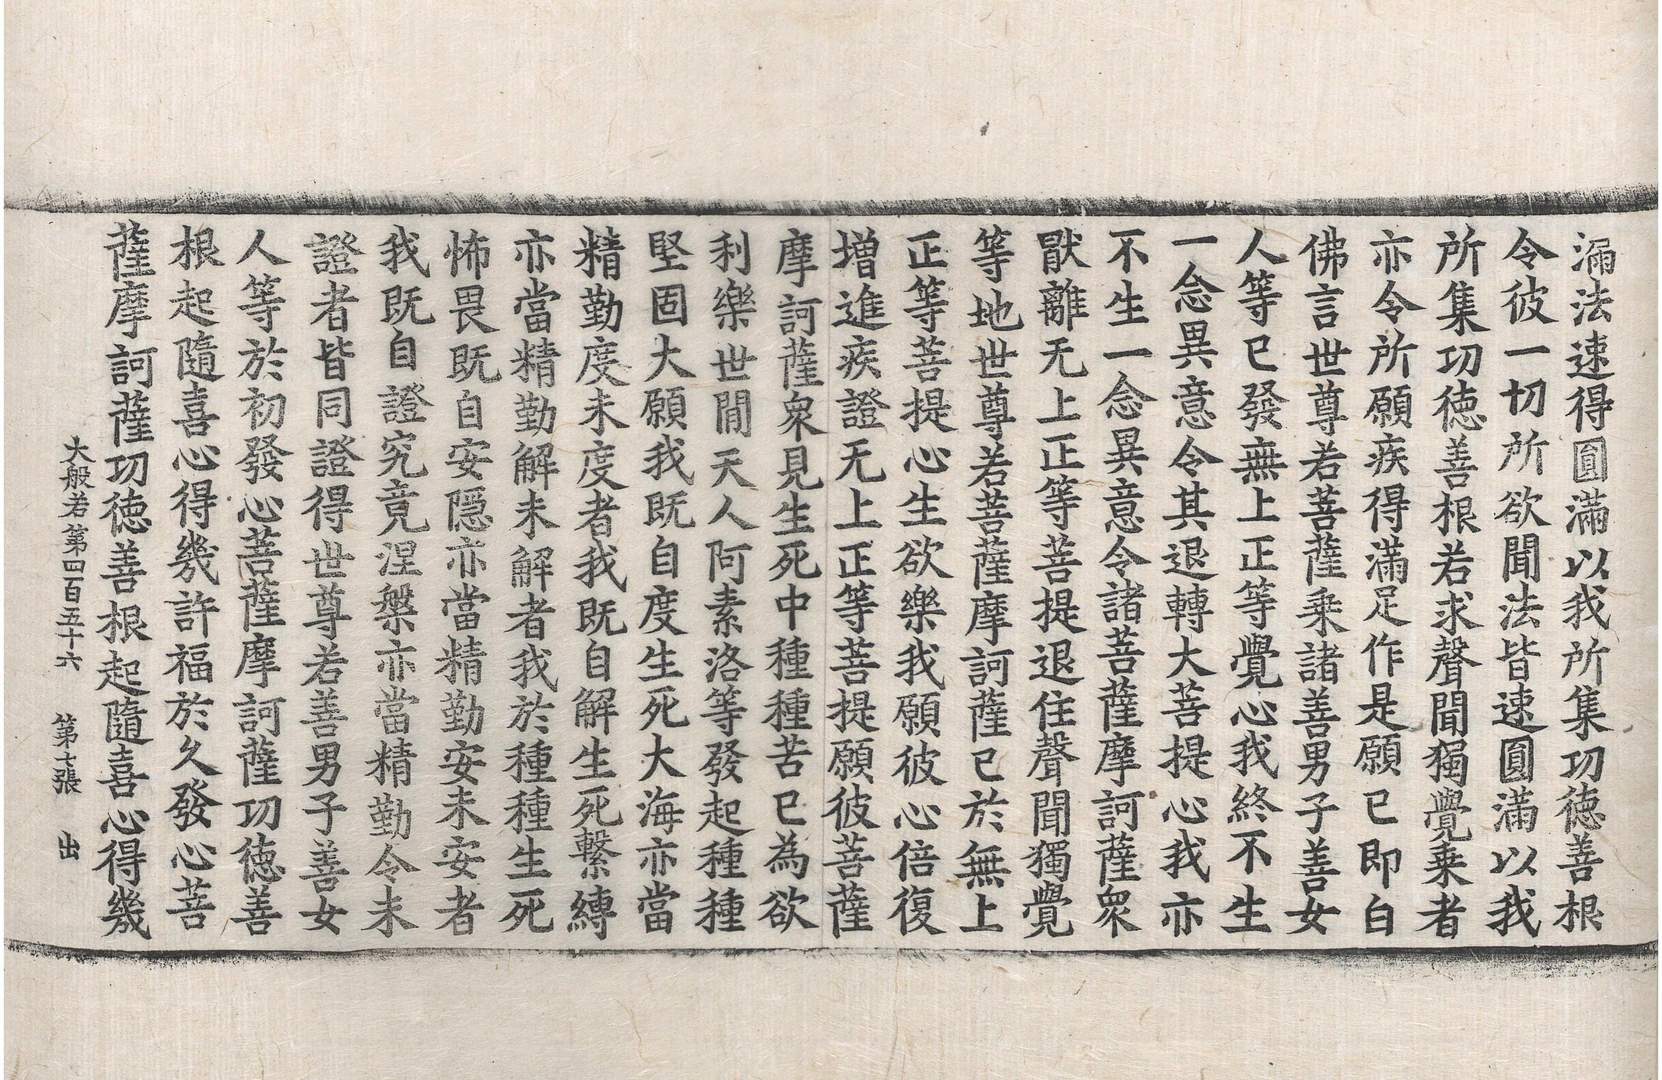 漏法速得圓滿以我所集功徳善根
令彼一切所欲聞法皆速圓滿以我
所集功徳善根若求聲聞獨覺乘者
亦令所願疾得滿足作是願已即白
佛言世尊若菩薩乘諸善男子善女
人等已發無上正等覺心我終不生
一念異意令其退轉大菩提心我亦
不生一念異意令諸菩薩摩訶薩衆
猒離无上正等菩提退住聲聞獨覺
等地世尊若菩薩摩訶薩已於無上
正等菩提心生欲樂我願彼心倍復
增進疾證无上正等菩提願彼菩薩
摩訶薩衆見生死中種種苦已為欲
利樂世間天人阿素洛等發起種種
堅固大願我既自度生死大海亦當
精勤度未度者我既自解生死繫縛
亦當精勤解未解者我於種種生死
怖畏既自安隱亦當精勤安未安者
我既自證究竟涅槃亦當精勤令未
證者皆同證得世尊若善男子善女
人等於初發心菩薩摩訶薩功徳善
根起隨喜心得幾許福於久發心菩
薩摩訶薩功徳善根起隨喜心得幾
大般若第四百五十六 第七張 出